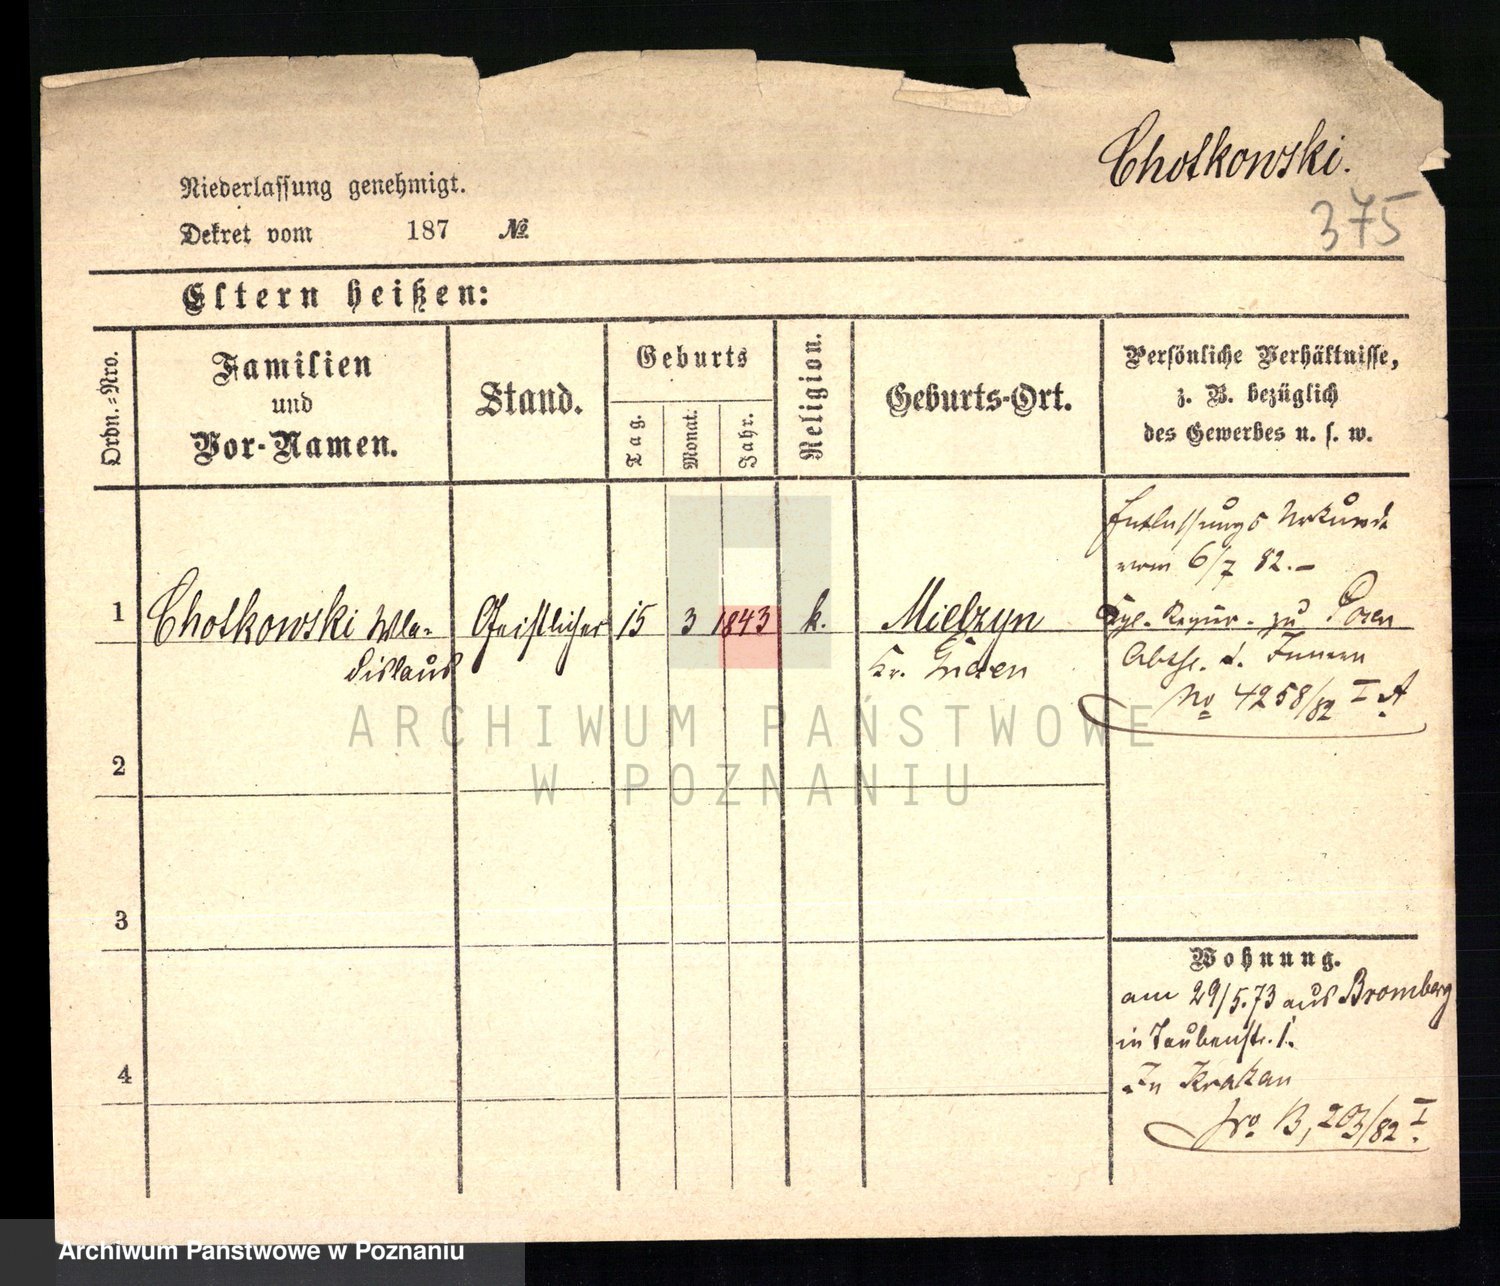 Chotkowski.
375
Niederlassung genehmigt.
Dekret vom 187 №
Eltern heißen:
Ordn.-Nro.
Familien
und
Vor-Namen.
Stand.
Geburts
Tag.
Monat.
Jahr.
Religion.
Geburts-Ort.
Persönliche Verhältnisse,
z. B. bezüglich
des Gewerbes u. s. w.
1
Chotkowski Wla-
dislaus
Geistlicher
15
3
1843
k.
Mielzyn
Kr. Gnesen
Entlassungs Urkunde
vom 6/7 82.-
Kgl. Regier. zu Posen
Abth. d. Innern
No 4258/82 I A
2
3
4
Wohnung.
am 29/5.73 aus Bromberg
in Taubenstr. 1.
In Krakau
No. B, 203/82 I.
ARCHIWUM PAŃSTWOWE
W POZNANIU
Archiwum Państwowe w Poznaniu